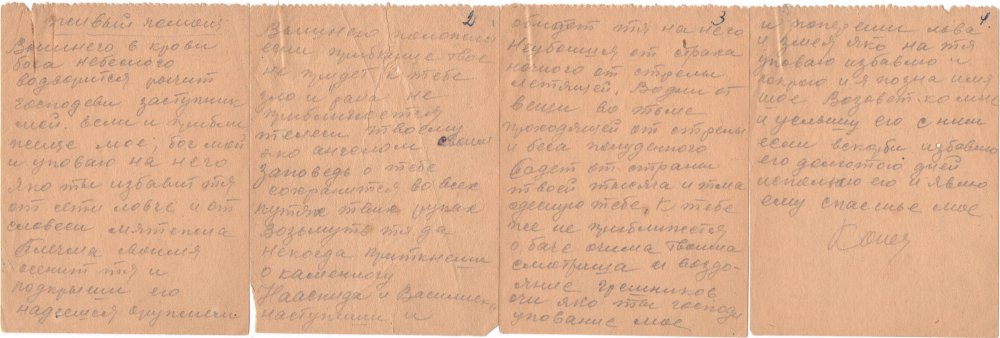 Живый помощи
Вышнего в крови
бога небесного
водворится речит
господеви заступник
мой. если и прибе
жище мое, бог мой
и уповаю на него
Яко ты избавит тя
от сети ловче и от
словеси мятежна
Плечма своима
осенит тя и
подкрыли его
надеешся оружием
2
Вышнего положил
если прибежище твое
не придет к тебе
зло и рана не
приближется
телеси твоему
яко ангелом своим
заповедь о тебе
сохранится во всех
путях твих руках
Возьмуть тя да
некогда приткнеши
о камен ногу
Нааспида и Василиска
наступиши и
3
обыдет тя на него
Неубоишся от страха
ночного от стрелы
летящей. Водни от
вещи во тьме
проходящей от стрелы
и беса полуденого
Падет от страны
твоей тысяща и тма
одесную тебе. К тебе
же не приближется
о, баче очима твоима
смотриша и воздо-
яние грешников
очи яко ты господи
упование мое
4.
и попереши льва
и змея яко на тя
уповаю избавлю и
покрою и я позна имя
мое Возовет ко мне
и услышу его с ним
если вскорби избавлю
его долготою дней
исполню его и явлю
ему спасенье мое
Конец